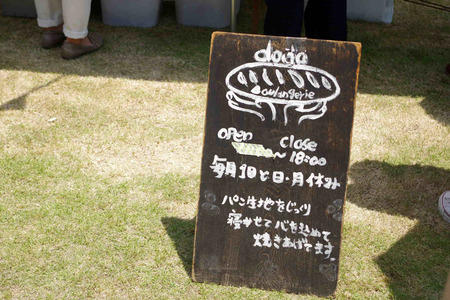 dodo
Boulangerie
open close
～18:00
毎月1日と日・月休み
パン生地をじっくり
寝かせて心を込めて
焼きあげてます。